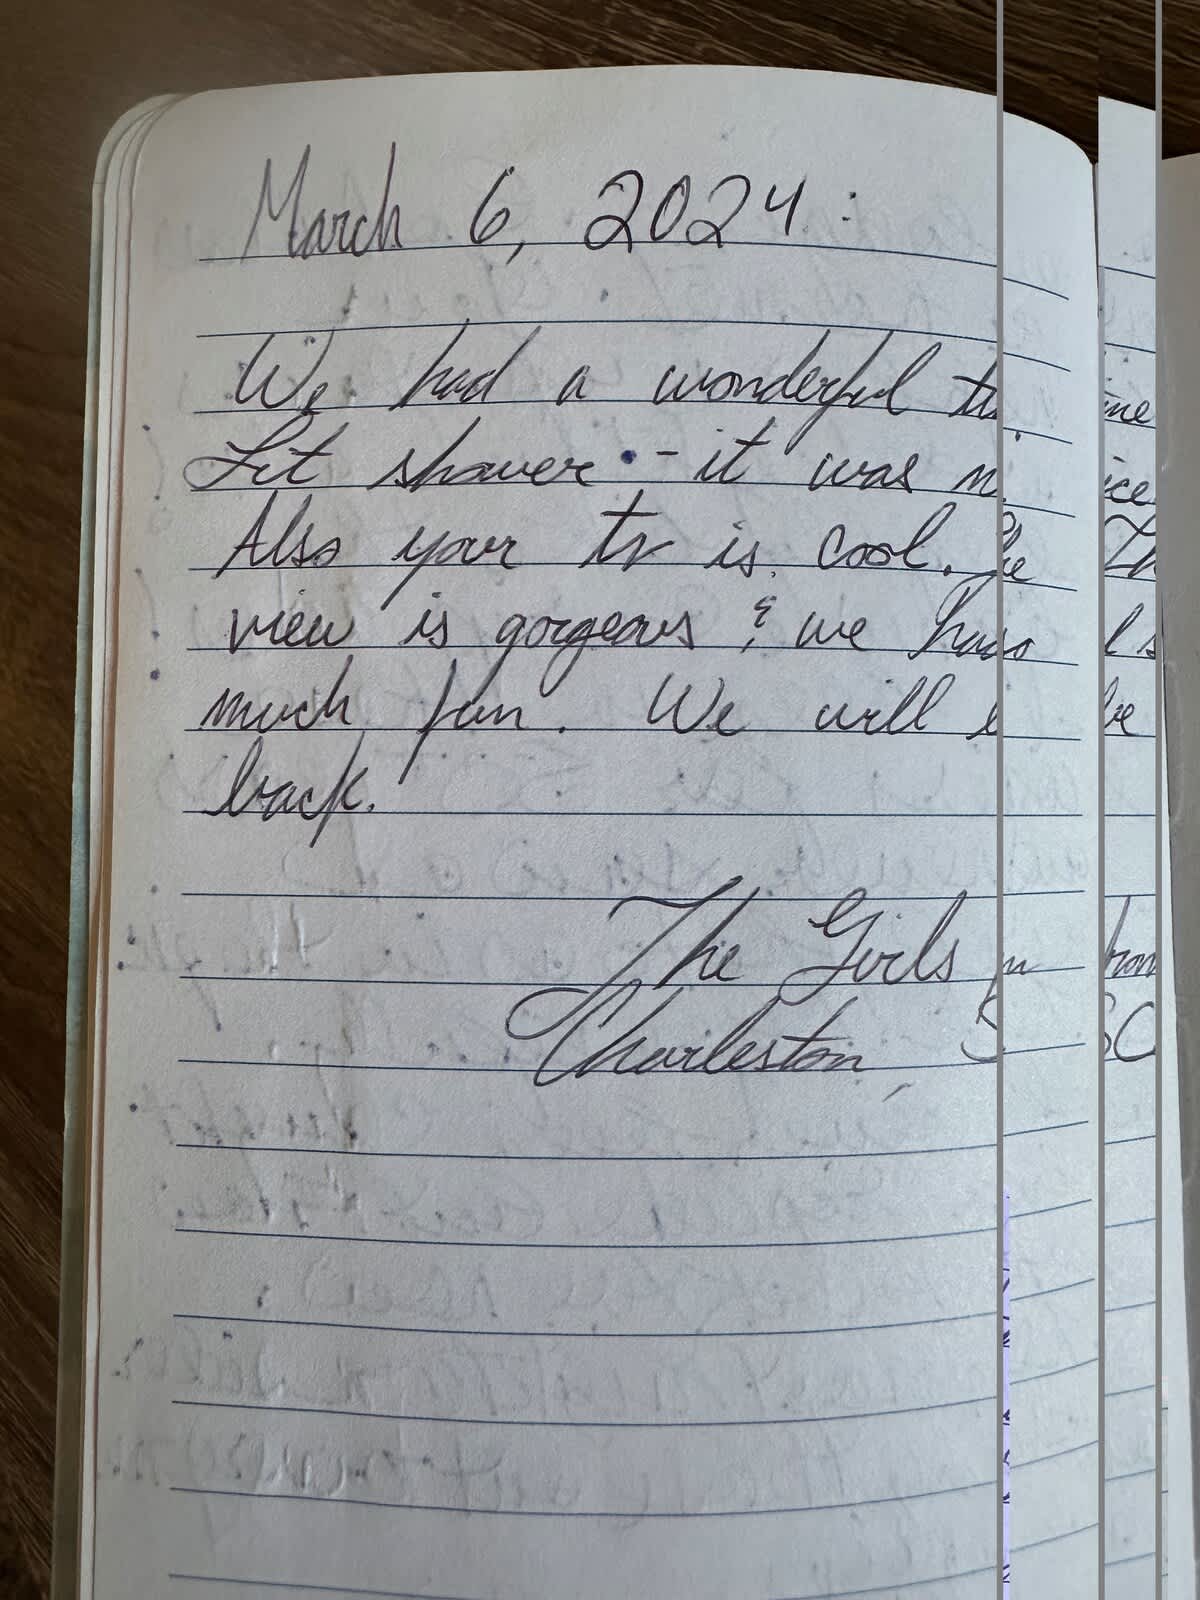 March 6, 2024:
We had a wonderful time
Lit shower - it was nice
Also your tv is cool. The
view is gorgeous & we had so
much fun. We will be
back.
The Girls from
Charleston, SC